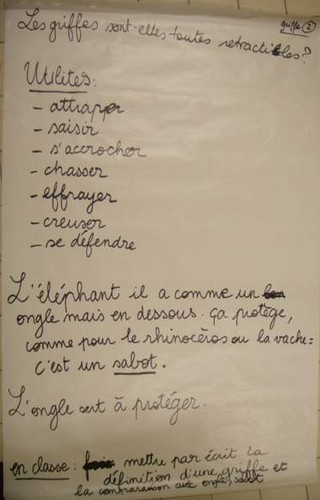 griffe 2
Les griffes sont-elles toutes rétractiles?
Utilités:
- attraper
- saisir
- s'accrocher
- chasser
- effrayer
- creuser
- se défendre
L'éléphant il a comme un
ongle mais en dessous. ça protège,
comme pour le rhinocéros ou la vache:
c'est un sabot.
L'ongle sert à protéger.
en classe: mettre par écrit la
définition d'une griffe et
la comparaison avec ongle, sabot